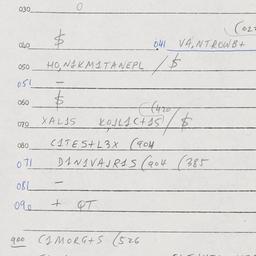 030 0
(02
040 $ 041 VA,NTROWB+
050 HO,N1KM1TANEPL / $
051 –
060 $
(420
070 XAL1S KOJL1C+1S / $
080 C1TES+L3X (904
071 D1N1VAJR1S (904 (385
081 –
090 + QT
900 C1MORG+S (526